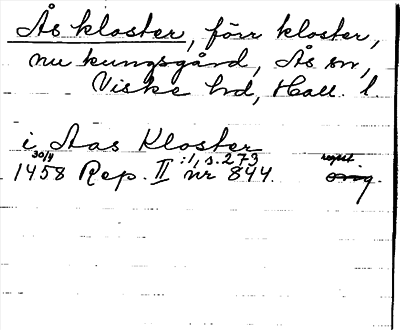 Ås kloster, förr kloster,
nu kungsgård, Ås sn,
Viske hd, Hall. l.
i Aas Kloster
30/4 :1, s. 273 regist.
1458 Rep. II nr 844. orig.